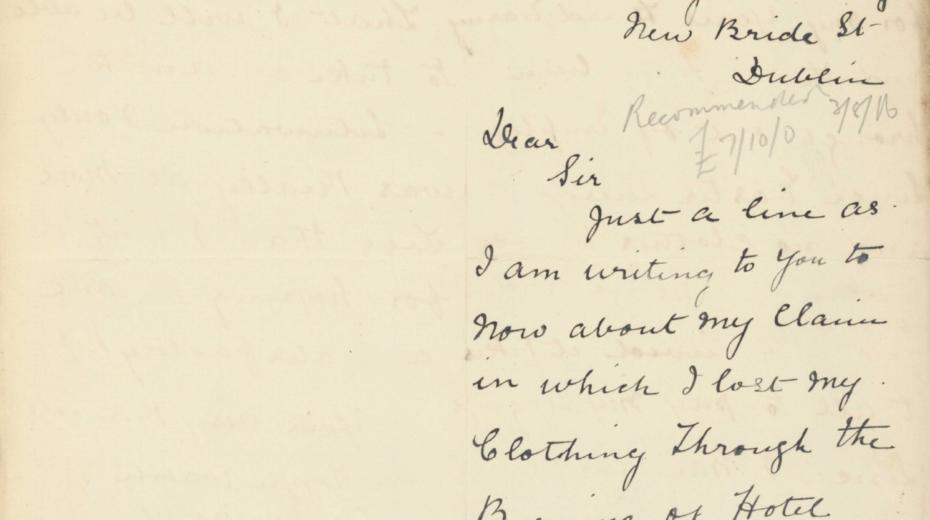 New Bride St
Dublin
Recommended 3/8/16
£7/10/0
Dear
Sir
Just a line as
I am writing to you to
Now about my Claim
in which I lost my
Clothing Through the
of Hotel